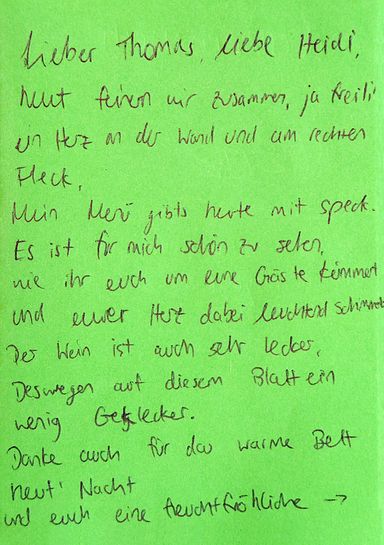 Lieber Thomas, liebe Heidi,
heut feiern wir zusammen, ja freili
ein Herz an der Wand und am rechten
Fleck,
Mein Menü gibts heute mit Speck.
Es ist für mich schön zu sehen,
wie ihr euch um eure Gäste kümmert
und euer Herz dabei leuchtend
Der Wein ist auch sehr lecker,
Deswegen auf diesem Blatt ein
wenig Geklecker.
Danke auch für das warme Bett
heut' Nacht
und euch eine feuchtfröhliche →